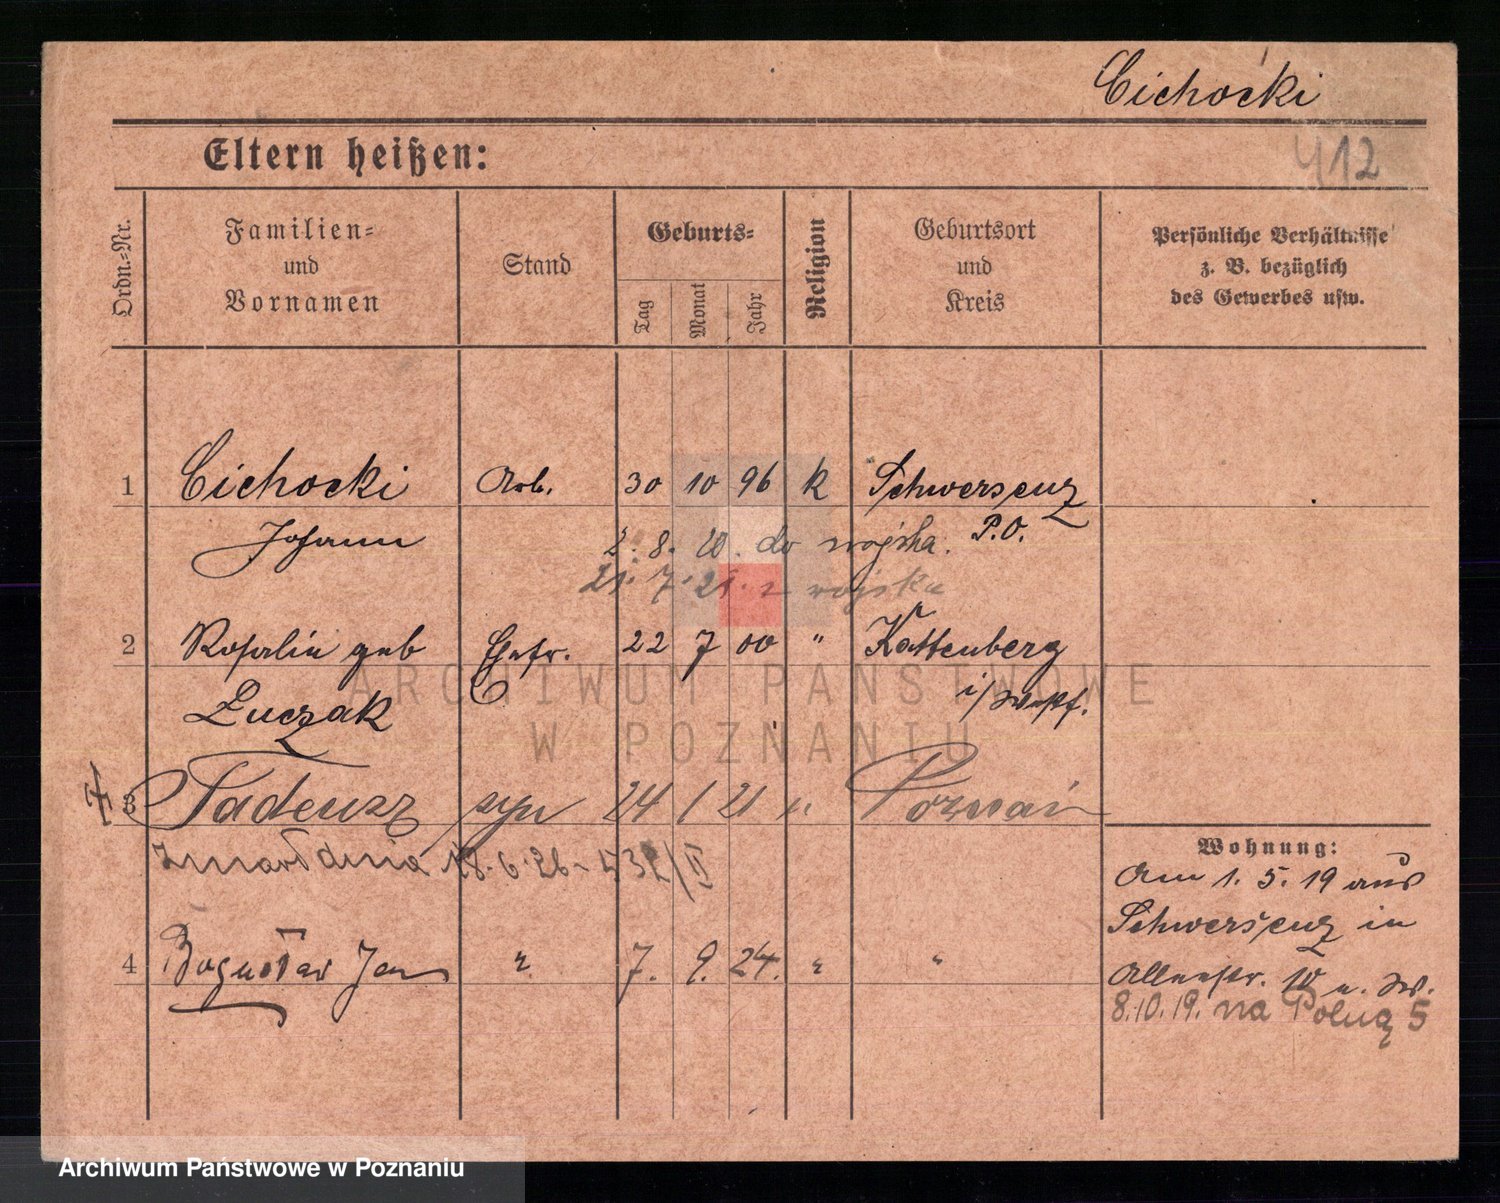 Cichocki
412
Eltern heißen:
Ordn.-Nr.
Familien-
und
Vornamen
Stand
Geburts-
Tag
Monat
Jahr
Religion
Geburtsort
und
Kreis
Persönliche Verhältnisse
z. B. bezüglich
des Gewerbes usw.
1 Cichocki Arb. 30 10 96 k Schwersenz
Johann P.O.
2. 8. 20. do wojska.
21. 7. 21. z wojska
2 Rosalie geb Ehefr. 22 7 00 " Kattenberg
Łuczak i/Westf.
3 Tadeusz syn 24 / 21 " Poznań
Zmarł dnia 18.6.26 - 532/II
4 Bogusław Jan " 7. 9. 24. " "
Wohnung:
Am 1. 5. 19 aus
Schwersenz in
Allerstr. 10 b. Sw.
8.10.19. na Polną 5
ARCHIWUM PAŃSTWOWE
W POZNANIU
Archiwum Państwowe w Poznaniu